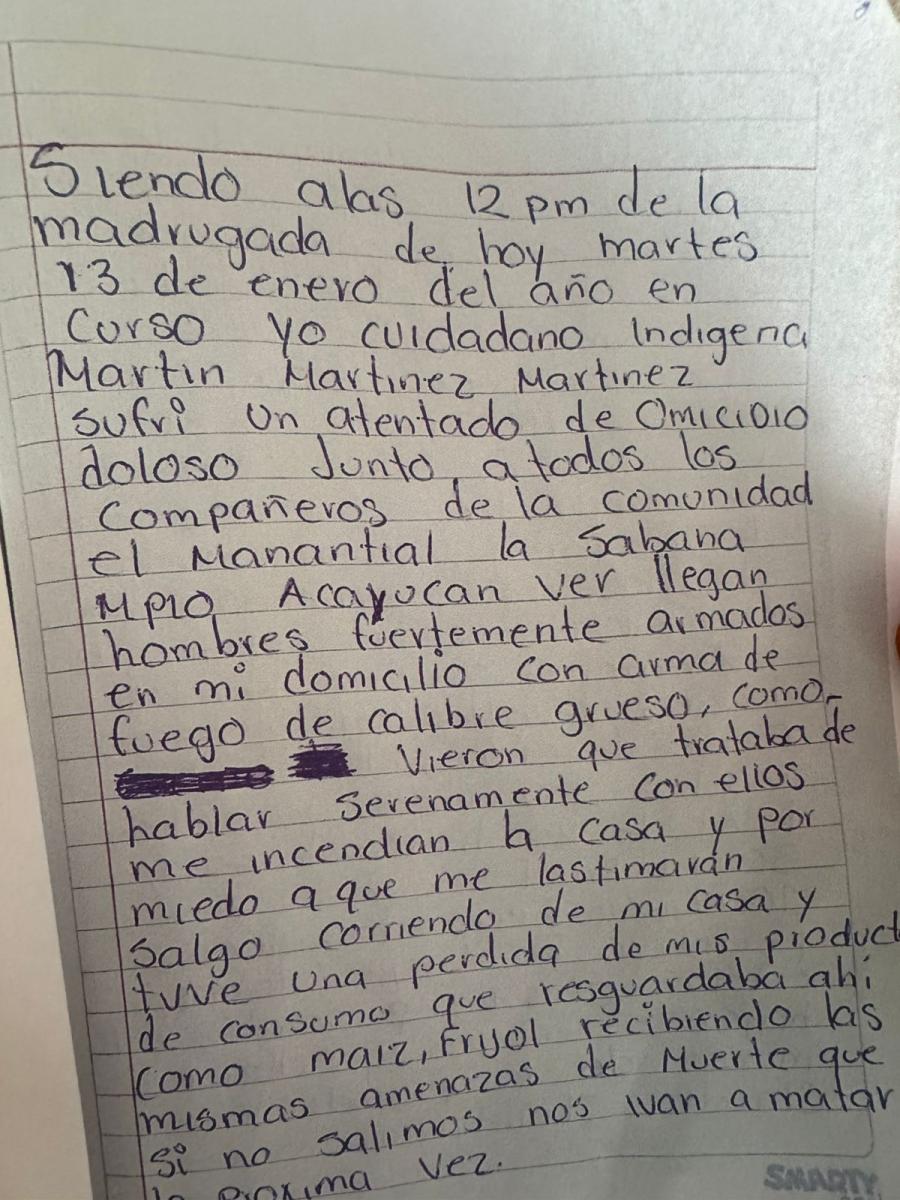 Siendo alas 12 pm de la
madrugada de hoy martes
13 de enero del año en
Curso yo cuidadano Indigena
Martin Martinez Martinez
sufri un atentado de Omicidio
doloso Junto a todos los
Compañeros de la comunidad
el Manantial la Sabana
Mpio Acayucan ver llegan
hombres fuertemente armados
en mi domicilio con arma de
fuego de calibre grueso, como
Vieron que trataba de
hablar serenamente con ellos
me incendian la casa y por
miedo a que me lastimarán
Salgo corriendo de mi casa y
tuve una perdida de mis product
de consumo que resguardaba ahí
Como maiz, Fryol recibiendo las
mismas amenazas de Muerte que
si no salimos nos ivan a matar
la proxima vez.
SMARTY